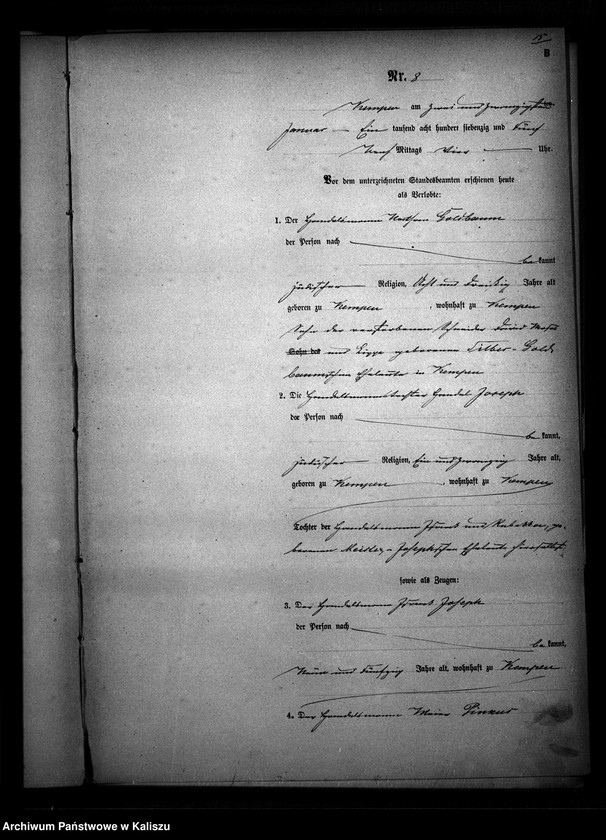 B
Nr. 8
Kempen am zwei und zwanzigsten
Januar Ein tausend acht hundert siebenzig und fünf
Nach Mittags vier Uhr.
Vor dem unterzeichneten Standesbeamten erschienen heute
als Verlobte:
1. Der Handelsmann Nathan Goldbaum
der Person nach
be kannt
jüdischer Religion, Acht und dreißig Jahre alt
geboren zu Kempen, wohnhaft zu Kempen
Sohn der verstorbenen Schneider David
Sohn des und Lippe geborenen Silber-Gold
baumschen Eheleute in Kempen
2. Die Handelsmannstochter Handel Joseph
der Person nach
be kannt,
jüdischer Religion, Ein und zwanzig Jahre alt,
geboren zu Kempen, wohnhaft zu Kempen
Tochter der Handelsmann und ge-
borenen Josephschen Eheleute hierselbst.
sowie als Zeugen:
3. Der Handelsmann Joseph
der Person nach
be kannt,
Neun und fünfzig Jahre alt, wohnhaft zu Kempen
4. Der Handelsmann Meier Pinkus
Archiwum Państwowe w Kaliszu